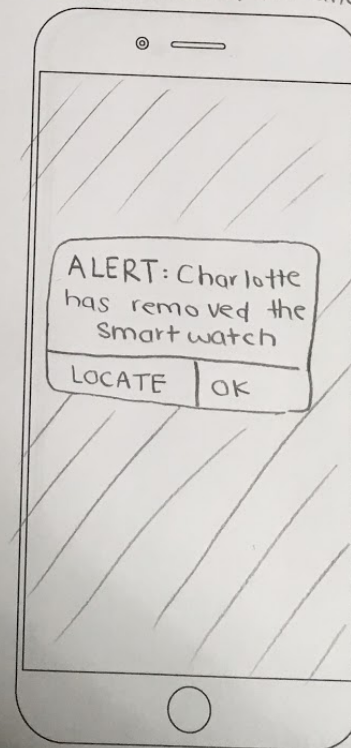 ALERT: Charlotte
has removed the
smartwatch
LOCATE OK